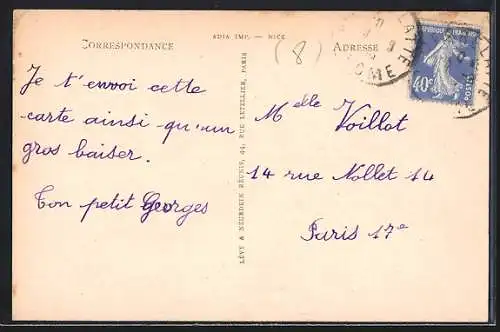 ADIA IMP. — NICE
CORRESPONDANCE
(8)
ADRESSE
Je t'envoi cette
carte ainsi qu'un
gros baiser.
Ton petit Georges
LÉVY & NEURDEIN RÉUNIS, 44, RUE LETELLIER, PARIS
Melle Voillot
14 rue Nollet 14
Paris 17e
REPUBLIQUE FRANÇAISE
40c
POSTES